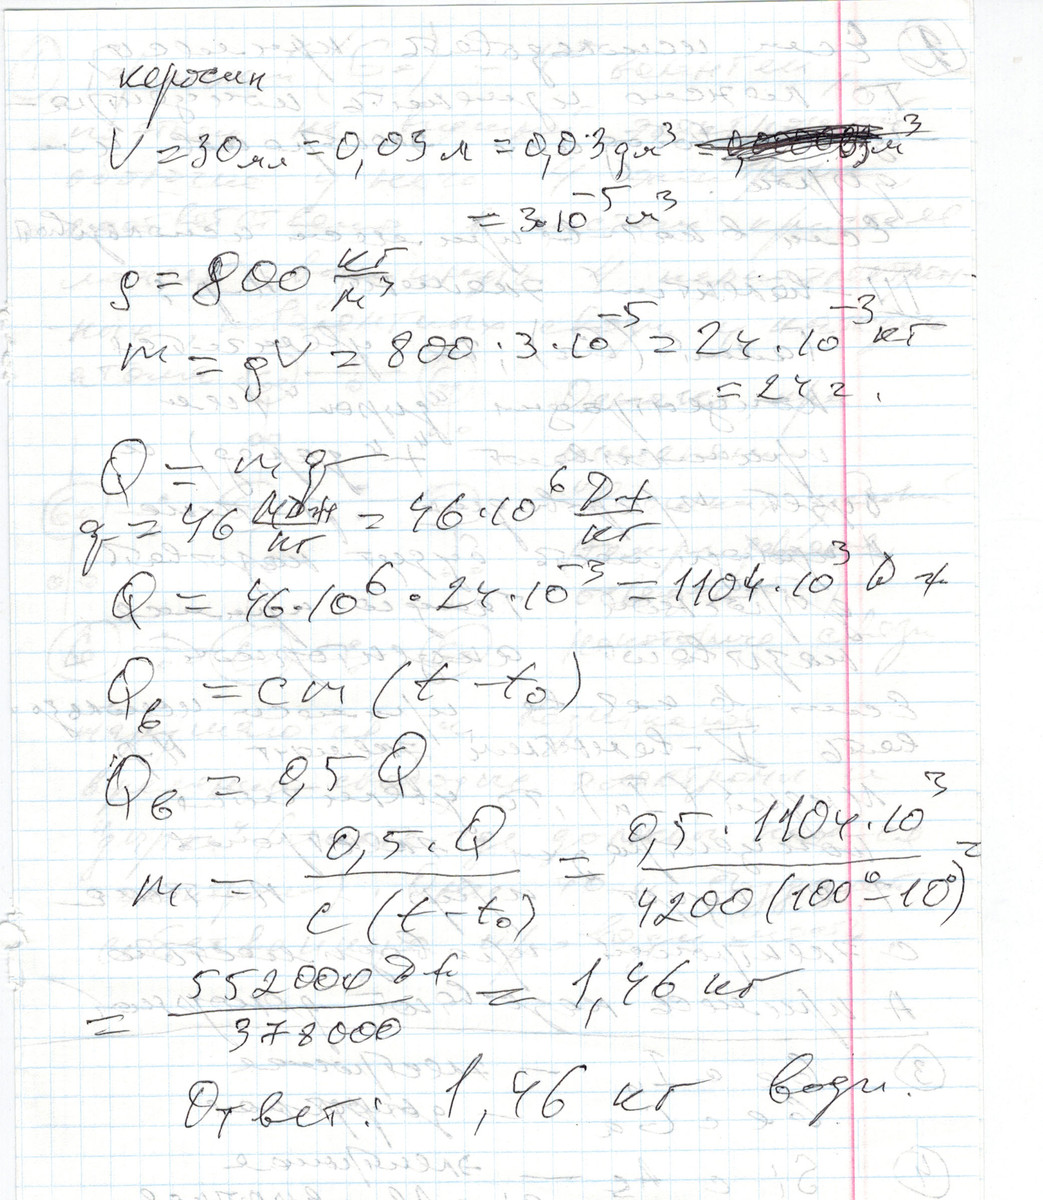 керосин
V = 30 мл = 0,03 л = 0,03 дм³ =
= 3·10⁻⁵ м³
ρ = 800 кг/м³
m = ρV = 800 · 3 · 10⁻⁵ = 24 · 10⁻³ кг
= 24 г.
Q = mq
q = 46 МДж/кг = 46·10⁶ Дж/кг
Q = 46·10⁶ · 24·10⁻³ = 1104·10³ Дж
Qв = cm (t - t₀)
Qв = 0,5 Q
m = 0,5·Q / c (t - t₀) = 0,5 · 1104·10³ / 4200 (100° - 10°) =
= 552000 Дж / 378000 = 1,46 кг
Ответ: 1,46 кг воды.